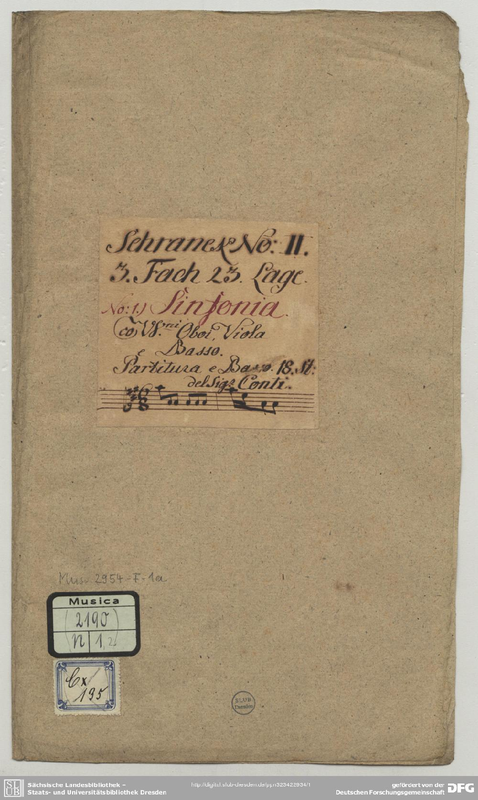 Schranck No: II.
3. Fach 23. Lage.
No: 1.) Sinfonia.
co VV.ni Oboi, Viola
e Basso.
Partitura e Basso. 18. St:
del Sigr Conti.
Mus. 2954-F-1a
Musica
(2190)
N 1,2
Cx
195
Sächsische Landesbibliothek –
Staats- und Universitätsbibliothek Dresden
gefördert von der
Deutschen Forschungsgemeinschaft
DFG